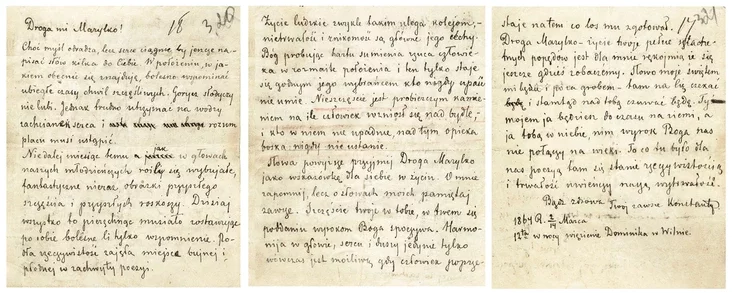 18
3,20
Droga mi Marylko!
Choć myśl odradza, lecz serce ciągnie by jeszcze na-
pisać słów kilka do Ciebie. W położeniu, w ja-
kiem obecnie się znajduję, boleśno wspominać
ubiegłe czasy chwil szczęśliwych. Gorycz słodyczy
nie lubi. Jednak trudno utrzymać na wodzy
zachcianek serca i rozum
placu musi ustąpić.
Nie dalej miesiąc temu a jak w głowach
naszych młodzieńczych roiły się wybujałe,
fantastyczne nieraz obrazki przyszłego
szczęścia i przyszłych roskoszy. Dzisiaj
wszystko to pierzchnąć musiało zostawując
po sobie boleśne li tylko wspomnienie. Po-
dła rzeczywistość zajęła miejsce bujnej i
płodnej w zachwyty poezyi.
Życie ludzkie zwykle takim ulega kolejom,-
nietrwałość i znikomość są główne jego cechy.
Bóg probując hartu sumienia rzuca człowie-
ka w rozmaite położenia i ten tylko staje
się godnym jego wybrańcem kto nigdy upaść
nie umie. Nieszczęście jest probierczym kamie-
niem na ile człowiek wzniosł się nad bydlę,-
i kto w niem nie upadnie, nad tym opieka
boska nigdy nie ustanie.
Słowa powyższe przyjmij Droga Marylko
jako wskazówkę dla siebie w życiu. O mnie
zapomnij, lecz o słowach moich pamiętaj
zawsze. Szczęście twoje w tobie, w twem się
poddaniu wyrokom Boga spoczywa. Harmo-
nija w głowie, sercu i duszy jedynie tylko
wówczas jest możliwą gdy człowiek poprze-
3,21
staje na tem co los mu zgotował.
Droga Marylko - życie twoje pełne szlache-
tnych popędów jest dla mnie rękojmią że się
jeszcze gdzieś zobaczemy. Słowo moje świętem
mi będzie i poza grobem - tam na Cię czekać
i stamtąd nad tobą czuwać będę. Ty
mojem ja będziesz do czasu na ziemi, a
ja tobą w niebie, nim wyrok Boga nas
nie połączy na wieki. To co tu było dla
nas poezyą tam się stanie rzeczywistością
i trwałość uwieńczy naszą wytrwałość.
Bądź zdrowa
Twój zawsze Konstanty
1864 R. 2/14 Marca
12ta w nocy więzienie Dominika w Wilnie